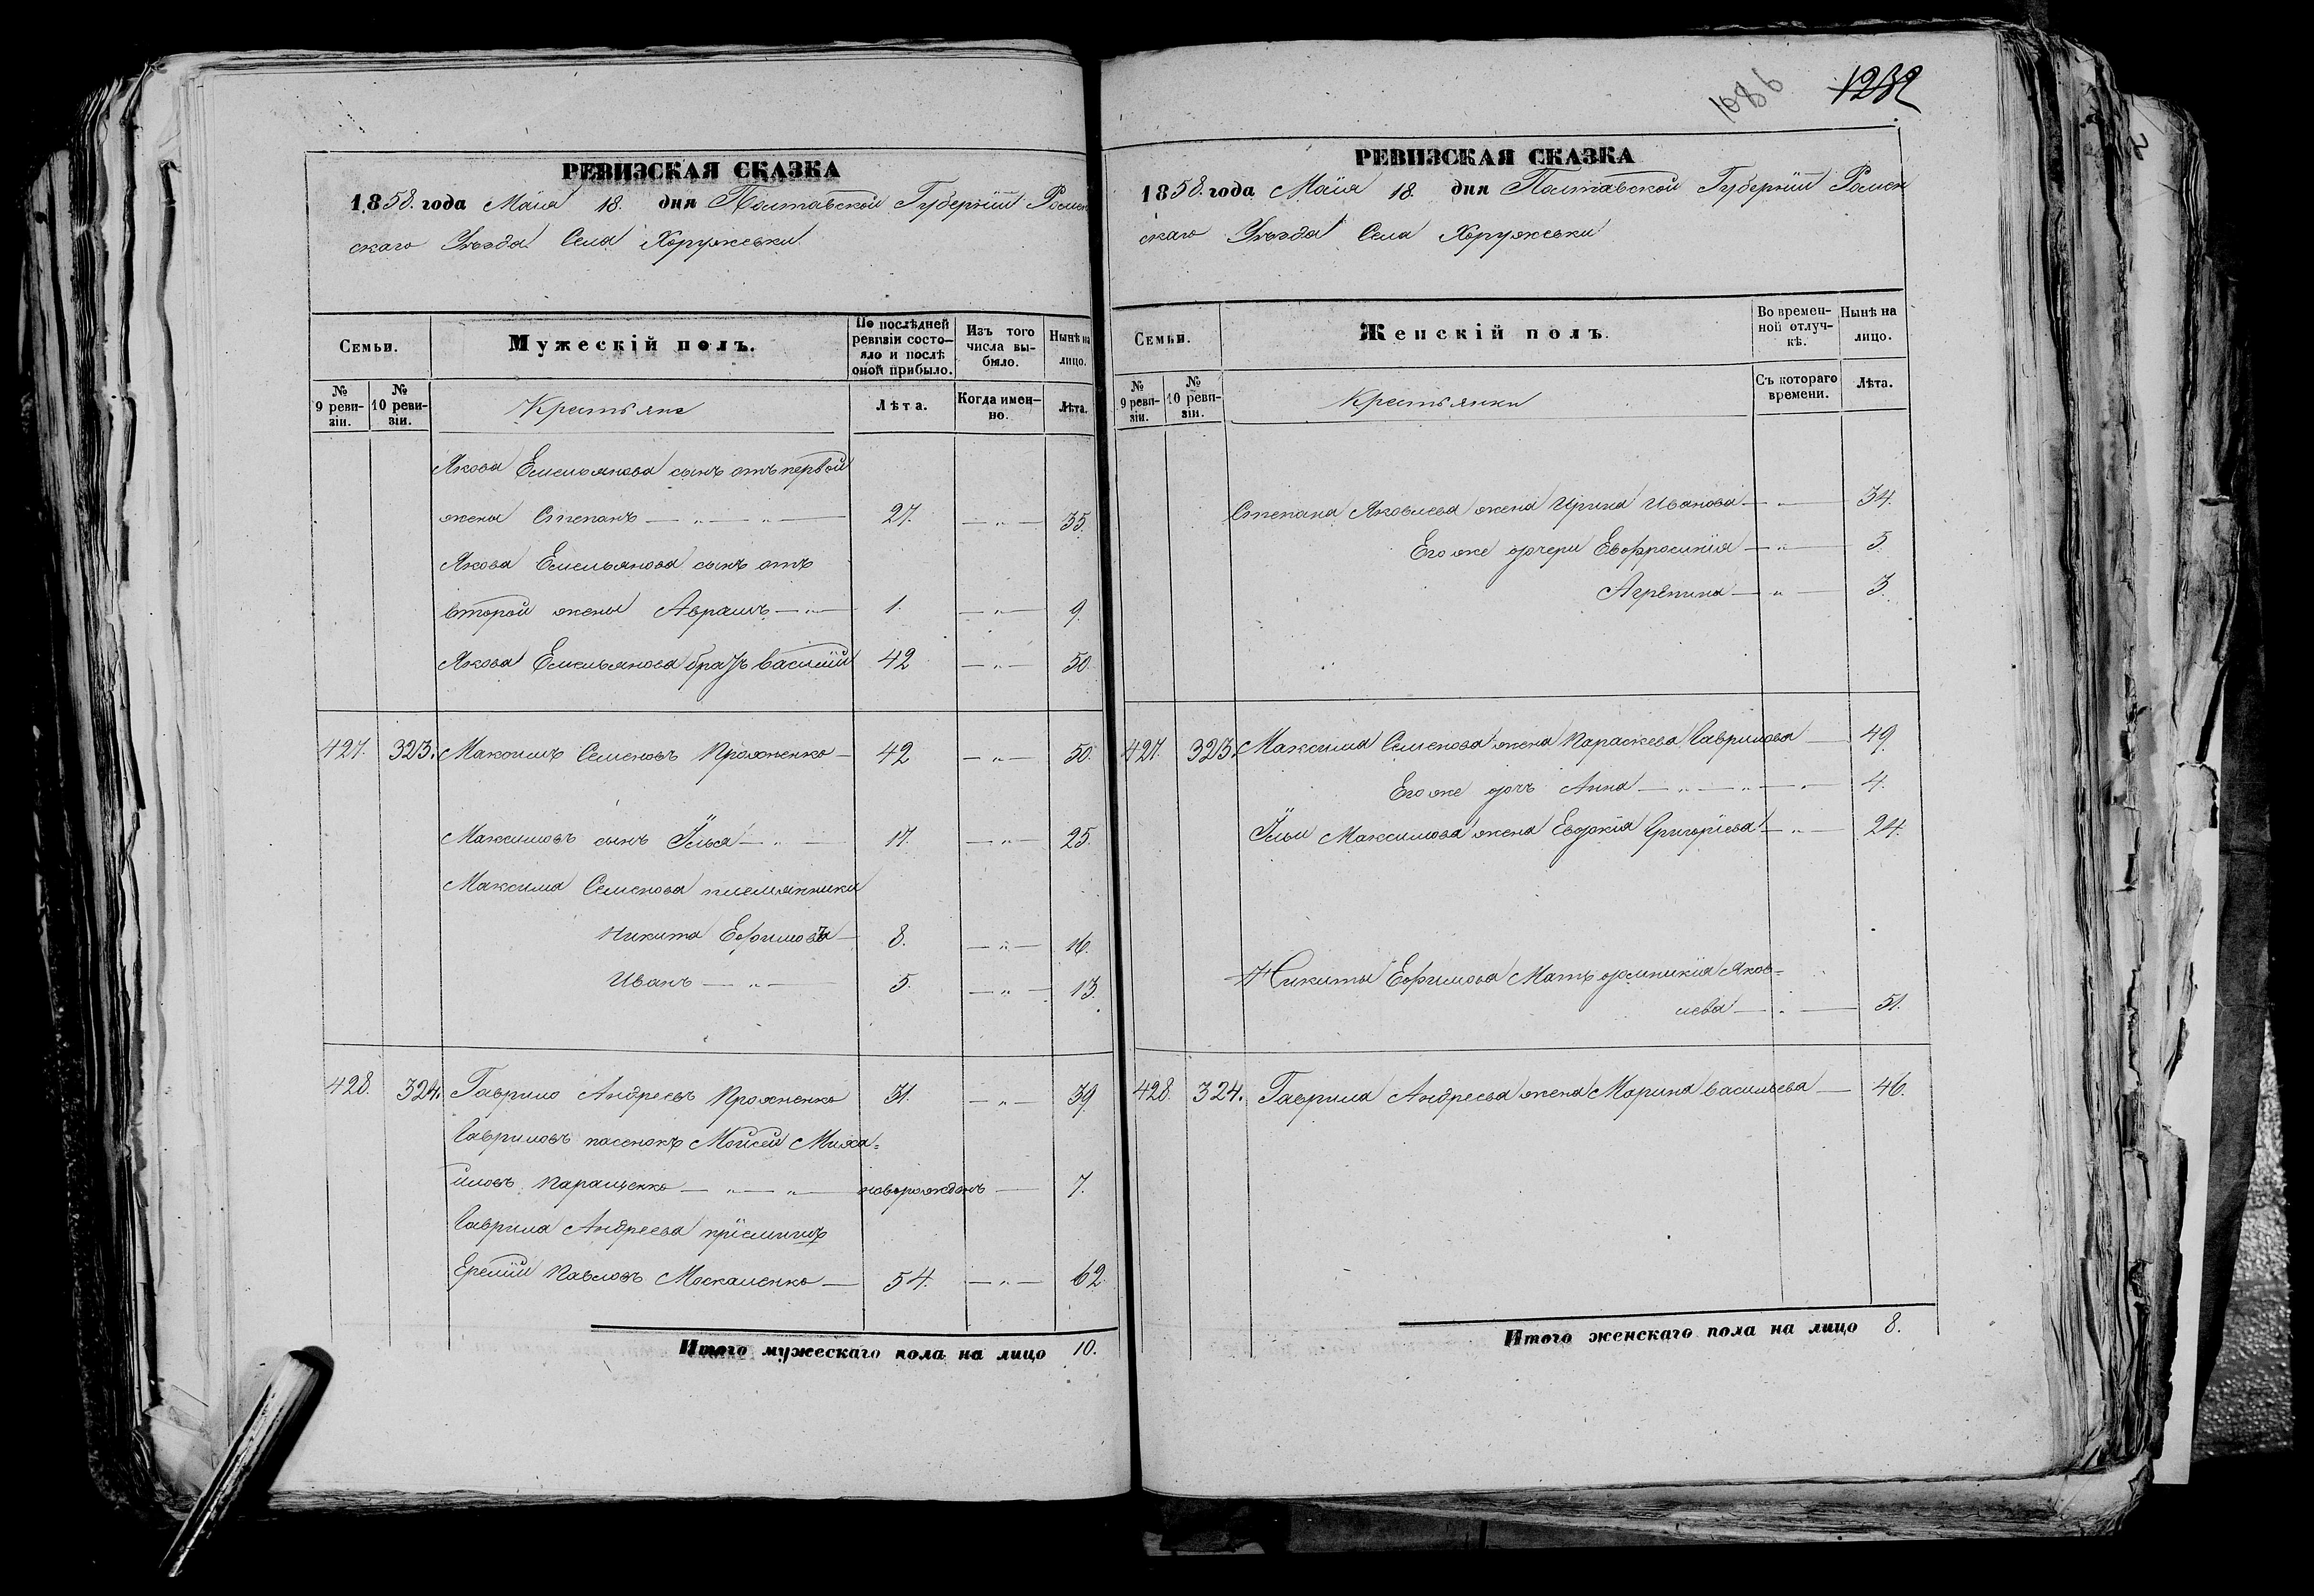 РЕВИЗСКАЯ СКАЗКА
1858. года Маія 18. дня Полтавской Губерніи Ромен
скаго Уѣзда Села Хоружевки
Семьи.
Мужескій полъ.
По послѣдней ревизіи состояло и послѣ оной прибыло.
Изъ того числа выбыло.
Нынѣ на лицо.
№ 9 ревизіи.
№ 10 ревизіи.
Крестьяне
Лѣта.
Когда именно.
Лѣта.
Якова Емельянова сынъ отъ первой
жены Степанъ — „ — „ — 27. — „ — 35.
Якова Емельянова сынъ отъ
второй жены Абрамъ — „ — 1. — „ — 9.
Якова Емельянова братъ Василий 42 — „ — 50.
427. 323. Максимъ Семеновъ Пройненко — 42 — „ — 50.
Максимовъ сынъ Илья — „ — 17. — „ — 25.
Максима Семенова племянники
Никита Ефимовъ — 8. — „ — 16.
Иванъ — „ — 5. — „ — 13.
428. 324. Гаврило Андреевъ Пройненко 31. — „ — 39.
Гавриловъ пасенокъ Моисей Миха=
йловъ Паращенко — „ — „ — новорожденъ — 7.
Гаврила Андреева пріемышъ
Еремій Павловъ Москаленко — 54. — „ — 62
Итого мужескаго пола на лицо 10.
1086 1232
РЕВИЗСКАЯ СКАЗКА
1858. года Маія 18. дня Полтавской Губерніи Ромен
скаго Уѣзда Села Хоружевки
Семьи.
Женскій полъ.
Во временной отлучкѣ.
Нынѣ на лицо.
№ 9 ревизіи.
№ 10 ревизіи.
Крестьянки
Съ котораго времени.
Лѣта.
Степана Яковлева жена Ирина Иванова — „ — 34.
Его же дочери Евфросинія — „ — 5.
Агрепина — „ — 3.
427. 323. Максима Семенова жена Параскева Гаврилова — 49.
Его же дочь Анна — „ — „ — „ — 4.
Ильи Максимова жена Евдокія Григоріева — „ — 24.
Никиты Ефимова Мать Домникія Яков=
лева — „ — 51.
428. 324. Гаврила Андреева жена Марина Васильева — 46.
Итого женскаго пола на лицо 8.